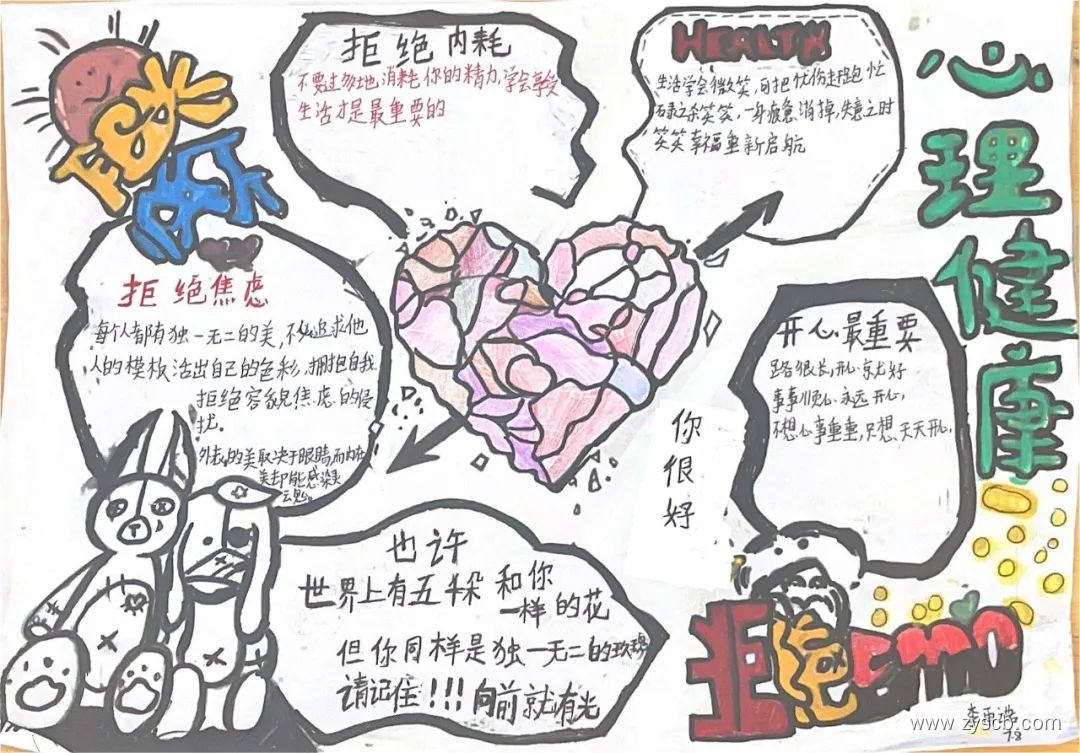 拒绝内耗
不要过多地消耗你的精力,学会享受
生活才是最重要的
HEALTH
生活学会微笑,可把忧伤赶跑 忙
碌之余笑笑,一身疲惫消掉,失意之时
笑笑幸福重新启航
心理健康
拒绝焦虑
每个人都有独一无二的美,不必追求他
人的模板活出自己的色彩,拥抱自我
拒绝容貌焦虑的侵
扰。
外表的美取决于眼睛,而内在
美却能感染
灵魂。
开心最重要
路很长,开心就好
事事顺心 永远开心,
不想心事重重,只想天天开心.
你
很
好
也许
世界上有五千朵和你
一样的花
但你同样是独一无二的玫瑰
请记住!!!向前就有光
拒绝emo
www.zyscb.com
7.8